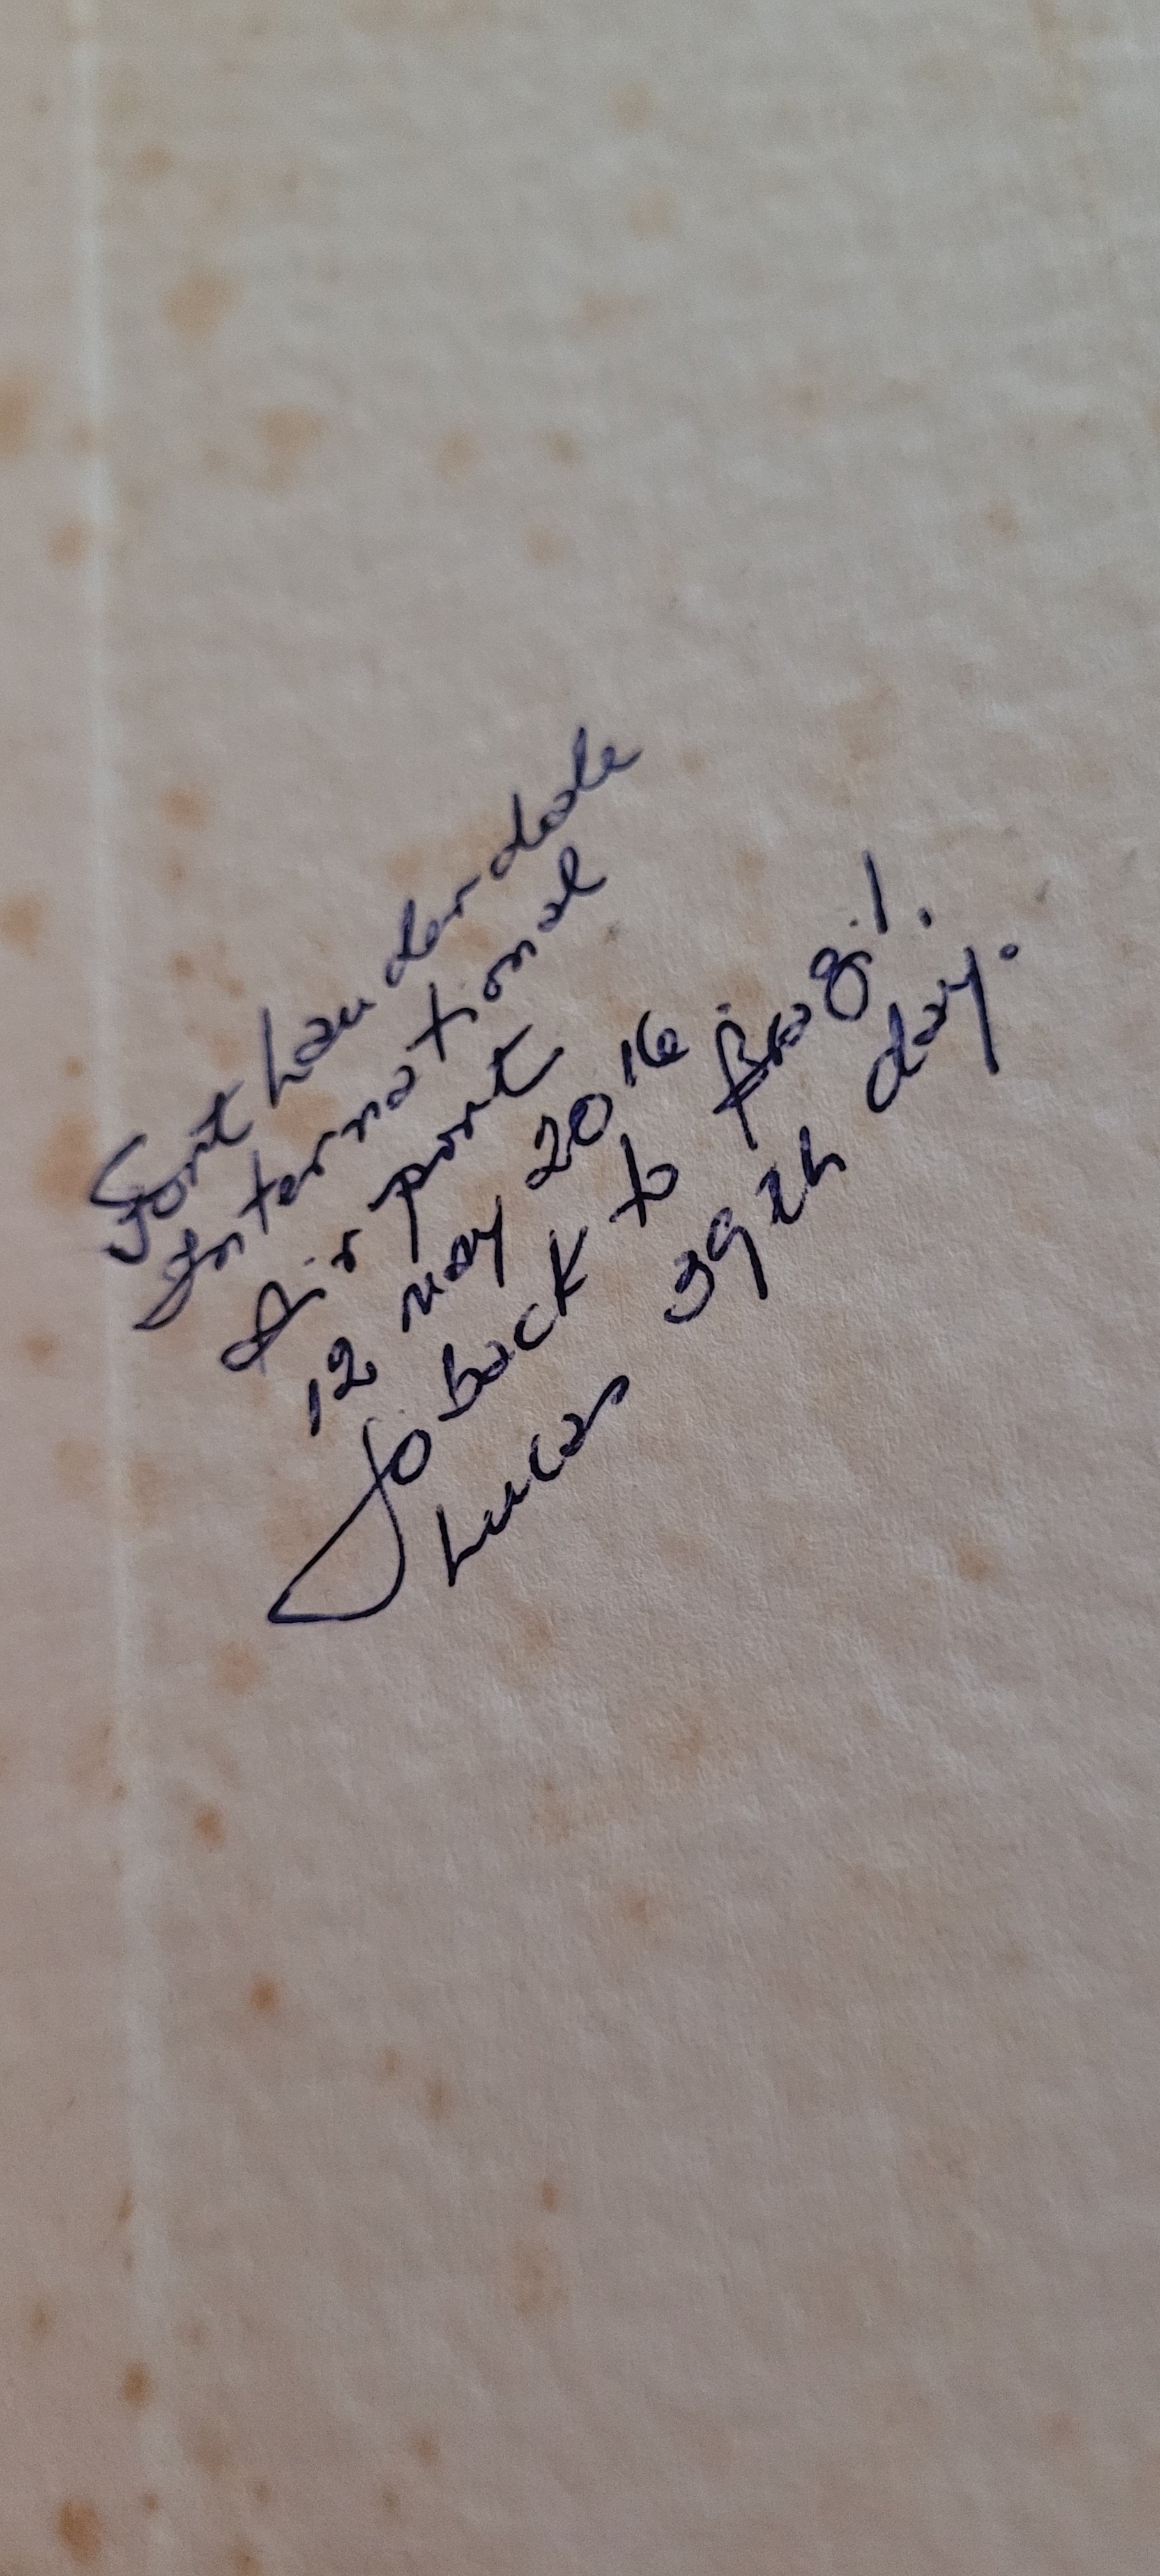 Fort Lauderdale
International
Airport
12 May 2016
Jo back to Brazil.
Lucas 39th day.